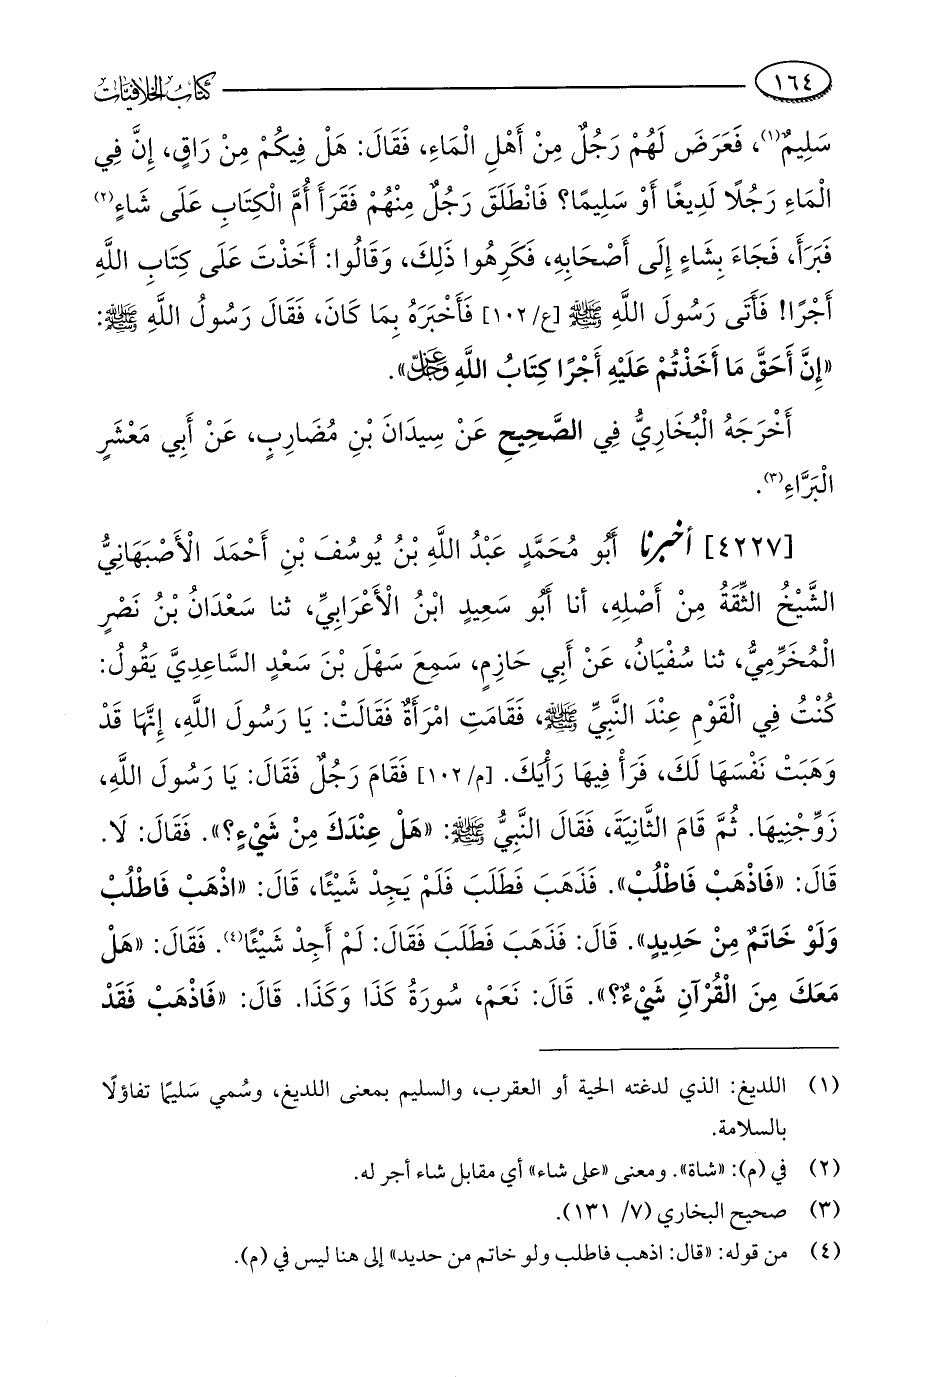 ١٦٤ كتاب الخلافيات
سَلِيمٌ(١)، فَعَرَضَ لَهُمْ رَجُلٌ مِنْ أَهْلِ الْمَاءِ، فَقَالَ: هَلْ فِيكُمْ مِنْ رَاقٍ، إِنَّ فِي
الْمَاءِ رَجُلًا لَدِيغًا أَوْ سَلِيمًا؟ فَانْطَلَقَ رَجُلٌ مِنْهُمْ فَقَرَأَ أُمَّ الْكِتَابِ عَلَى شَاءٍ(٢)
فَبَرَأَ، فَجَاءَ بِشَاءٍ إِلَى أَصْحَابِهِ، فَكَرِهُوا ذَلِكَ، وَقَالُوا: أَخَذْتَ عَلَى كِتَابِ اللَّهِ
أَجْرًا! فَأَتَى رَسُولَ اللَّهِ ﷺ [ع/١٠٢] فَأَخْبَرَهُ بِمَا كَانَ، فَقَالَ رَسُولُ اللَّهِ ﷺ:
«إِنَّ أَحَقَّ مَا أَخَذْتُمْ عَلَيْهِ أَجْرًا كِتَابُ اللَّهِ عَزَّوَجَلَّ».
أَخْرَجَهُ الْبُخَارِيُّ فِي الصَّحِيحِ عَنْ سِيدَانَ بْنِ مُضَارِبٍ، عَنْ أَبِي مَعْشَرٍ
الْبَرَّاءِ(٣).
[٤٢٢٧] أخبرنا أَبُو مُحَمَّدٍ عَبْدُ اللَّهِ بْنُ يُوسُفَ بْنِ أَحْمَدَ الْأَصْبَهَانِيُّ
الشَّيْخُ الثِّقَةُ مِنْ أَصْلِهِ، أنا أَبُو سَعِيدٍ ابْنُ الْأَعْرَابِيِّ، ثنا سَعْدَانُ بْنُ نَصْرٍ
الْمُخَرِّمِيُّ، ثنا سُفْيَانُ، عَنْ أَبِي حَازِمٍ، سَمِعَ سَهْلَ بْنَ سَعْدٍ السَّاعِدِيَّ يَقُولُ:
كُنْتُ فِي الْقَوْمِ عِنْدَ النَّبِيِّ ﷺ، فَقَامَتِ امْرَأَةٌ فَقَالَتْ: يَا رَسُولَ اللَّهِ، إِنَّهَا قَدْ
وَهَبَتْ نَفْسَهَا لَكَ، فَرَأْ فِيهَا رَأْيَكَ. [م/١٠٢] فَقَامَ رَجُلٌ فَقَالَ: يَا رَسُولَ اللَّهِ،
زَوِّجْنِيهَا. ثُمَّ قَامَ الثَّانِيَةَ، فَقَالَ النَّبِيُّ ﷺ: «هَلْ عِنْدَكَ مِنْ شَيْءٍ؟». فَقَالَ: لَا.
قَالَ: «فَاذْهَبْ فَاطْلُبْ». فَذَهَبَ فَطَلَبَ فَلَمْ يَجِدْ شَيْئًا، قَالَ: «اذْهَبْ فَاطْلُبْ
وَلَوْ خَاتَمٌ مِنْ حَدِيدٍ». قَالَ: فَذَهَبَ فَطَلَبَ فَقَالَ: لَمْ أَجِدْ شَيْئًا(٤). فَقَالَ: «هَلْ
مَعَكَ مِنَ الْقُرْآنِ شَيْءٌ؟». قَالَ: نَعَمْ، سُورَةُ كَذَا وَكَذَا. قَالَ: «فَاذْهَبْ فَقَدْ
(١) اللديغ: الذي لدغته الحية أو العقرب، والسليم بمعنى اللديغ، وسُمي سَليمًا تفاؤلًا
بالسلامة.
(٢) في (م): «شاة». ومعنى «على شاء» أي مقابل شاء أجر له.
(٣) صحيح البخاري (٧/ ١٣١).
(٤) من قوله: «قال: اذهب فاطلب ولو خاتم من حديد» إلى هنا ليس في (م).